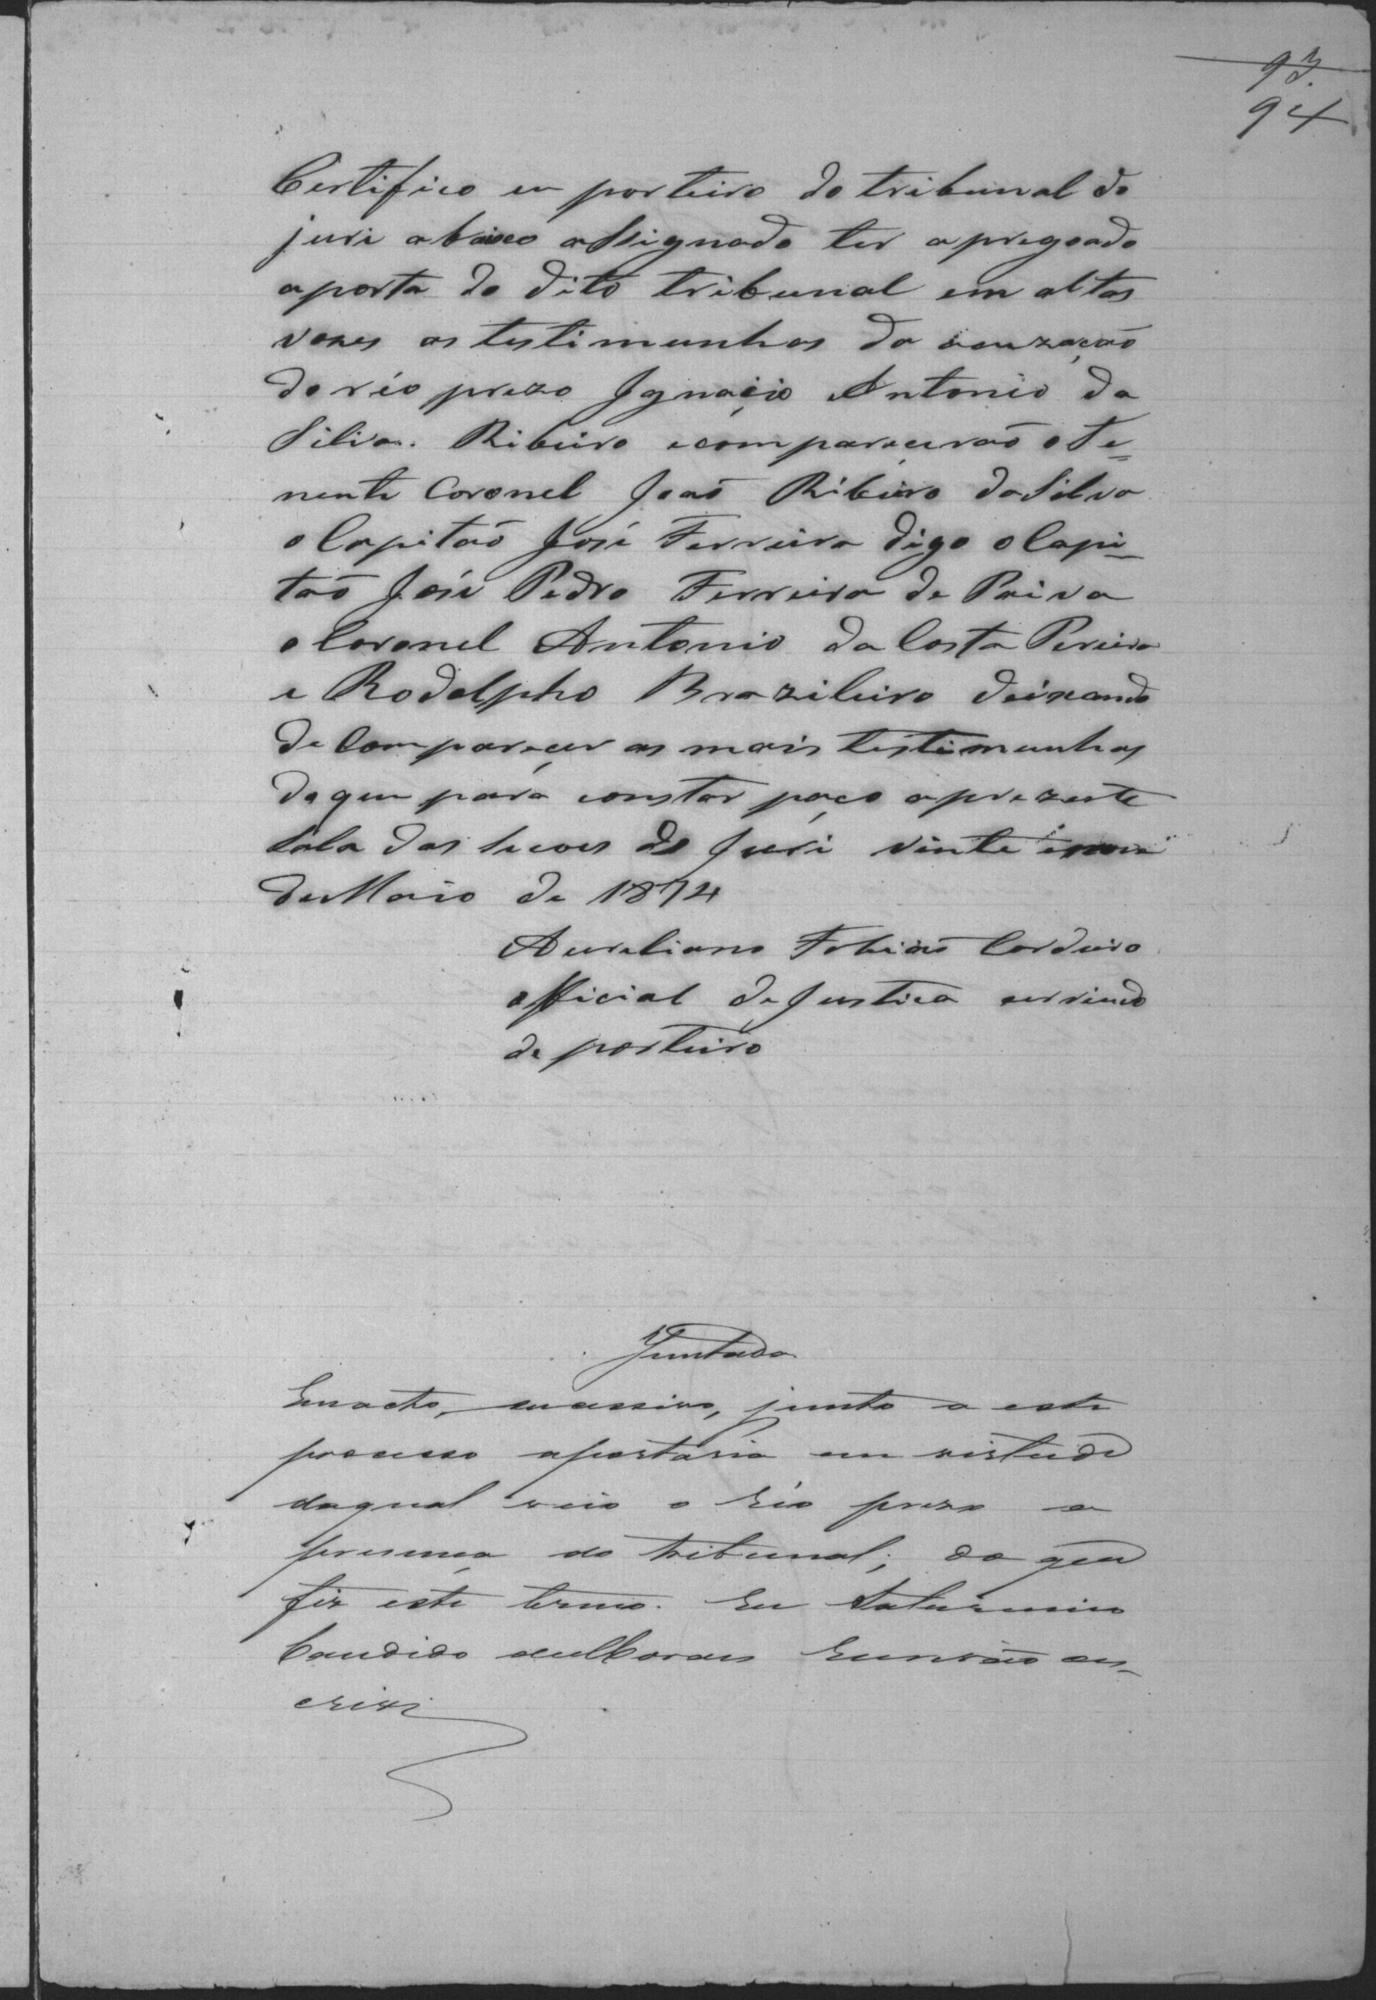 93.
94
Certifico eu porteiro do tribunal do
juri abaixo assignado ter apregoado
aporta do dito tribunal em altas
vozes as testimunhas da acuzação
do réo prezo Ignaçio Antonio da
Silva. Ribeiro ecompareçerão o Te=
nente Coronel João Ribeiro da Silva
o Capitaõ José Ferreira digo o Capi-
taõ José Pedro Ferreira de Paiva
o Coronel Antonio da Costa Pereira
e Rodolpho Brazileiro deixando
de Compareçer as mais testimunhas
do que para constar paço aprezente
Sala das secoes do Juri vinte
de Maio de 1874
Aureliano Cordeiro
official de Justica servindo
de porteiro
Juntada
Em acto, sucessivo, junto a este
processo aportaria em virtude
daqual veio o réo prezo a
presença do tribunal; do que
fiz este termo. Eu Saturnino
Candido de Moraes Escrivão es-
crivi